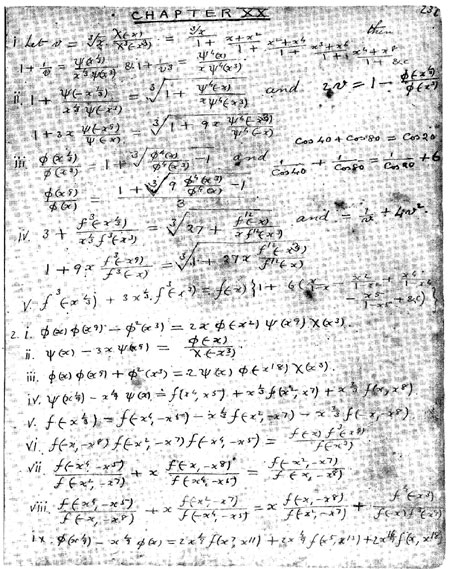 CHAPTER XX
232
i. Let v = ∛x χ(-x)/χ³(-x³) = ∛x/1+ x+x²/1+ x²+x⁴/1+ x³+x⁶/1+ x⁴+x⁸/1+&c then
1+ 1/v = ψ(x^⅓)/x^⅓ψ(x³) & 1+ 1/v³ = ψ⁴(x)/xψ⁴(x³)
ii. 1+ ψ(-x^⅓)/x^⅓ψ(-x³) = ∛1+ ψ⁴(-x)/xψ⁴(-x³) and 2v = 1 - φ(-x^⅓)/φ(-x³)
1+3x ψ(-x⁹)/ψ(-x) = ∛1+9x ψ⁴(-x³)/ψ⁴(-x)
Cos 40 + Cos 80 = Cos 20
iii. φ(x^⅓)/φ(x³) = 1+ ∛φ⁴(x)/φ⁴(x³) -1 and 1/Cos 40 + 1/Cos 80 = 1/Cos 20 + 6
φ(x⁹)/φ(x) = 1+ ∛9 φ⁴(x³)/φ⁴(x) -1 / 3
iv. 3+ f³(-x^⅓)/x^⅓f³(-x³) = ∛27+ f¹²(-x)/xf¹²(-x³) and = 1/v + 4v².
1+9x f³(-x⁹)/f³(-x) = ∛1+27x f¹²(-x³)/f¹²(-x)
v. f³(-x^⅓) + 3x^⅓ f³(-x³) = f(-x) {1+ 6( x/1-x - x²/1-x² + x⁴/1-x⁴
- x⁵/1-x⁵ + &c) }
2. i. φ(x) φ(x⁹) - φ²(x³) = 2x φ(-x²) ψ(x⁹) χ(x³).
ii. ψ(x) - 3x ψ(x⁹) = φ(-x)/χ(-x³)
iii. φ(x) φ(x⁹) + φ²(x³) = 2ψ(x) φ(-x¹⁸) χ(x³).
iv. f(x⁴, x⁵) + x^⅓ f(x², x⁷) + f(x, x⁸)
v. f(-x^⅓) = f(-x⁴, -x⁵) - x^⅓ f(-x², -x⁷) - x^⅔ f(-x, -x⁸)
vi. f(-x, -x⁸) f(-x², -x⁷) f(-x⁴, -x⁵) = f(-x) f³(-x⁹)/f(-x³)
vii. f(-x⁴, -x⁵)/f(-x², -x⁷) + x f(-x, -x⁸)/f(-x⁴, -x⁵) = f(-x², -x⁷)/f(-x, -x⁸)
viii. f(-x⁴, -x⁵)/f(-x, -x⁸) + x f(-x², -x⁷)/f(-x⁴, -x⁵) = x f(-x, -x⁸)/f(-x², -x⁷) +
ix. φ(x^⅓) - φ(x) =